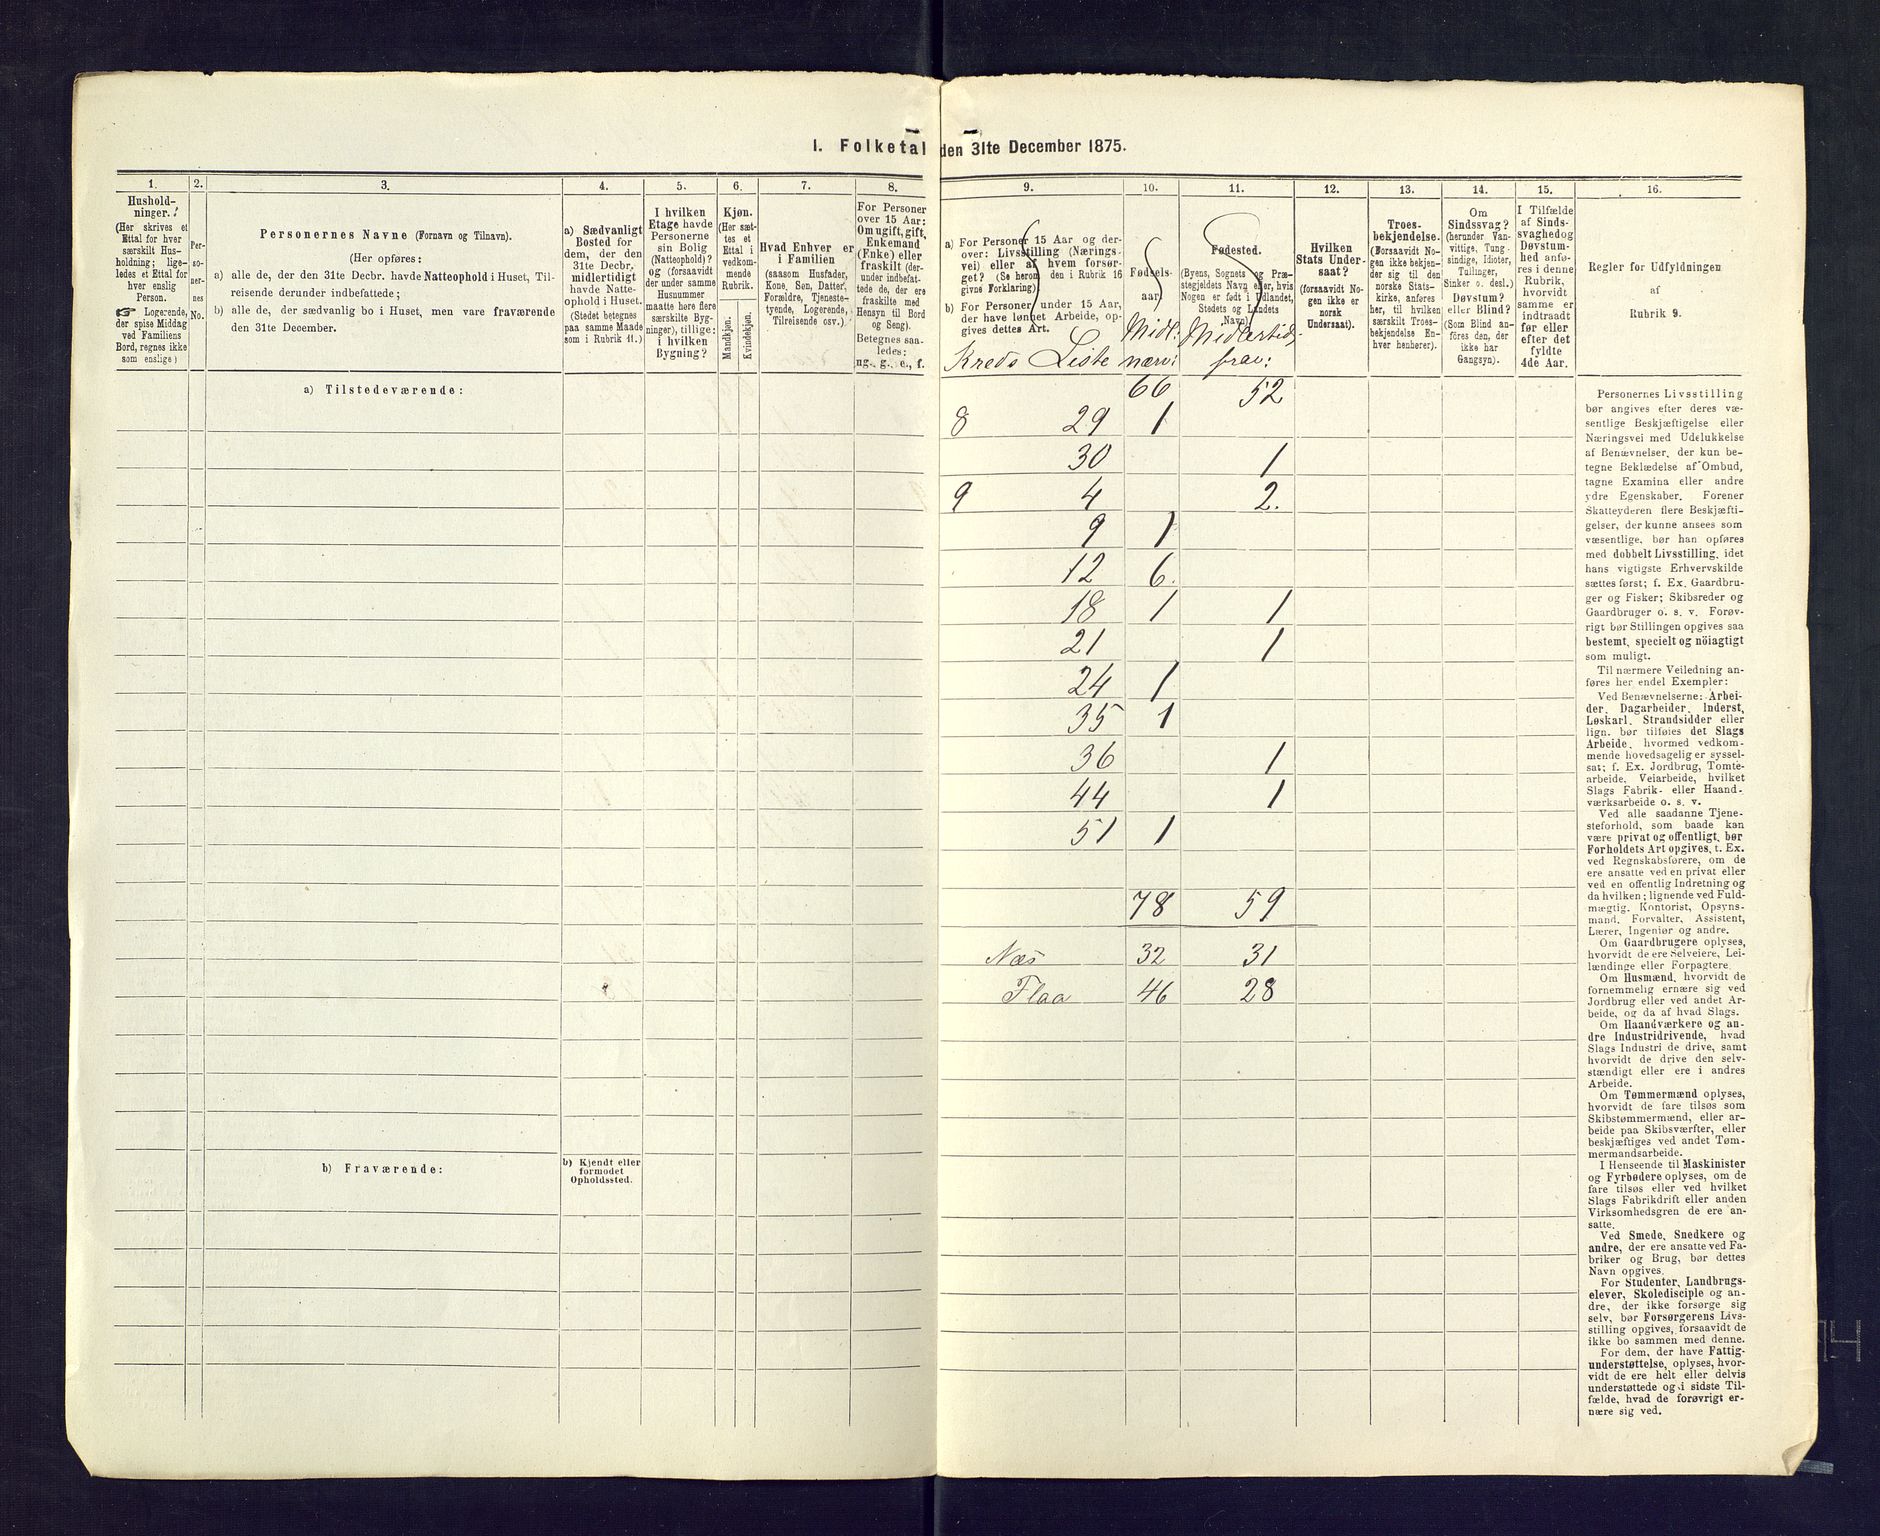 I. Folketal den 31te December 1875.
1.
Hushold-
ninger.
(Her skrives et
Ettal for hver
særskilt Hus-
holdning; lige-
ledes et Ettal for
hver enslig
Person.
☞ Logerende,
der spise Middag
ved Familiens
Bord, regnes ikke
som enslige)
2.
Per-
so-
ner-
nes
No.
3.
Personernes Navne (Fornavn og Tilnavn).
(Her opføres:
a) alle de, der den 31te Decbr. havde Natteophold i Huset, Til-
reisende derunder indbefattede;
b) alle de, der sædvanlig bo i Huset, men vare fraværende
den 31te December.
4.
a) Sædvanligt
Bosted for
dem, der den
31te Decbr.
midlertidigt
havde Natte-
ophold i Huset.
(Stedet betegnes
paa samme Maade
som i Rubrik 11.)
5.
I hvilken
Etage havde
Personerne
sin Bolig
(Natteophold)?
og (forsaavidt
der under samme
Husnummer
maatte høre flere
særskilte Byg-
ninger), tillige:
i hvilken
Bygning?
6.
Kjøn.
(Her sæt-
tes et
Ettal i
vedkom-
mende
Rubrik.
Mandkjøn.
Kvindekjøn.
7.
Hvad Enhver er
i Familien
(saasom Husfader,
Kone, Søn, Datter,
Forældre, Tjeneste-
tyende, Logerende,
Tilreisende osv.)
8.
For Personer
over 15 Aar:
Om ugift, gift,
Enkemand
(Enke) eller
fraskilt (der-
under indbefat-
tede de, der ere
fraskilte med
Hensyn til Bord
og Seng).
Betegnes saa-
ledes:
ug., g., e., f.
9.
a) For Personer 15 Aar og der-
over: Livsstilling (Nærings-
vei) eller af hvem forsør-
get? (Se herom den i Rubrik 16
givne Forklaring)
b) For Personer under 15 Aar,
der have lønnet Arbeide, op-
gives dettes Art.
Kreds Liste
10.
Fødsels-
aar.
Midl:
nærv:
11.
Fødested.
(Byens, Sognets og Præ-
stegjeldets Navn eller, hvis
Nogen er født i Udlandet,
Stedets og Landets
Navn)
Midlertid:
frav:
12.
Hvilken
Stats Under-
saat?
(forsaavidt No-
gen ikke er
norsk
Undersaat).
13.
Troes-
bekjendelse.
(Forsaavidt No-
gen ikke bekjen-
der sig til den
norske Stats-
kirke, anføres
her, til hvilken
særskilt Troes-
bekjendelse En-
hver henhører).
14.
Om
Sindssvag?
(herunder Van-
vittige, Tung-
sindige, Idioter,
Tullinger,
Sinker o. desl.)
Døvstum?
eller Blind?
(Som Blind an-
føres den, der
ikke har
Gangsyn).
15.
I Tilfælde
af Sinds-
svaghed og
Døvstum-
hed anfø-
res i denne
Rubrik,
hvorvidt
samme er
indtraadt
før eller
efter det
fyldte
4de Aar.
16.
Regler for Udfyldningen
af
Rubrik 9.
a) Tilstedeværende:
66 52
8 29 1
30 1
9 4 2.
9 1
12 6.
18 1 1
21 1
24 1
35 1
36 1
44 1
51 1
78 59
Næs 32 31
Flaa 46 28
b) Fraværende:
b) Kjendt eller
formodet
Opholdssted.
Personernes Livsstilling
bør angives efter deres væ-
sentlige Beskjæftigelse eller
Næringsvei med Udelukkelse
af Benævnelser, der kun be-
tegne Beklædelse af Ombud,
tagne Examina eller andre
ydre Egenskaber. Forener
Skatteyderen flere Beskjæfti-
gelser, der kunne ansees som
væsentlige, bør han opføres
med dobbelt Livsstilling, idet
hans vigtigste Erhvervskilde
sættes først; f. Ex. Gaardbru-
ger og Fisker; Skibsreder og
Gaardbruger o. s. v. Forøv-
rigt bør Stillingen opgives saa
bestemt, specielt og nöiagtigt
som muligt.
Til nærmere Veiledning an-
føres her endel Exempler:
Ved Benævnelserne: Arbei-
der, Dagarbeider, Inderst,
Løskarl, Strandsidder eller
lign. bør tilføies det Slags
Arbeide, hvormed vedkom-
mende hovedsagelig er syssel-
sat; f. Ex. Jordbrug, Tomte-
arbeide, Veiarbeide, hvilket
Slags Fabrik- eller Haand-
værksarbeide o. s. v.
Ved alle saadanne Tjene-
steforhold, som baade kan
være privat og offentligt, bør
Forholdets Art opgives, t. Ex.
ved Regnskabsførere, om de
ere ansatte ved en privat eller
ved en offentlig Indretning og
da hvilken; lignende ved Fuld-
mægtig, Kontorist, Opsyns-
mand, Forvalter, Assistent,
Lærer, Ingeniør og andre.
Om Gaardbrugere oplyses,
hvorvidt de ere Selveiere, Lei-
lændinge eller Forpagtere.
Om Husmænd, hvorvidt de
fornemmelig ernære sig ved
Jordbrug eller ved andet Ar-
beide, og da af hvad Slags.
Om Haandværkere og an-
dre Industridrivende, hvad
Slags Industri de drive, samt
hvorvidt de drive den selv-
stændigt eller ere i andres
Arbeide.
Om Tømmermænd oplyses,
hvorvidt de fare tilsøs som
Skibstømmermænd, eller ar-
beide paa Skibsværfter, eller
beskjæftiges ved andet Tøm-
mermandsarbeide.
I Henseende til Maskinister
og Fyrbødere oplyses, om de
fare tilsøs eller ved hvilket
Slags Fabrikdrift eller anden
Virksomhedsgren de ere an-
satte.
Ved Smede, Snedkere og
andre, der ere ansatte ved Fa-
briker og Brug, bør dettes
Navn opgives.
For Studenter, Landbrugs-
elever, Skoledisciple og an-
dre, der ikke forsørge sig
selv, bør Forsørgerens Livs-
stilling opgives, forsaavidt de
ikke bo sammen med denne.
For dem, der have Fattig-
understøttelse, oplyses, hvor-
vidt de ere helt eller delvis
understøttede og i sidste Til-
fælde, hvad de forøvrigt er-
nære sig ved.